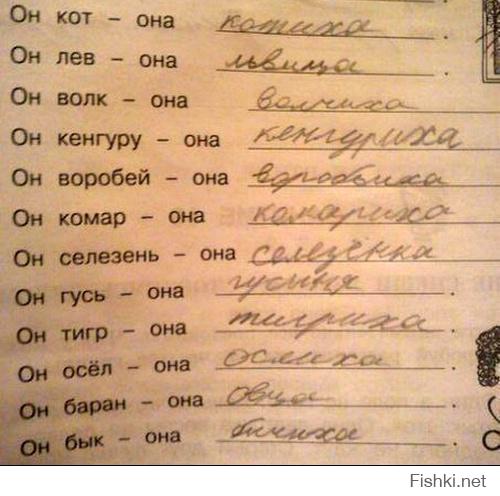 Он кот – она котиха.
Он лев – она львица.
Он волк – она волчиха.
Он кенгуру – она кенгуриха
Он воробей – она воробьиха
Он комар – она комариха
Он селезень – она селезёнка
Он гусь – она гусыня.
Он тигр – она тигриха.
Он осёл – она ослиха.
Он баран – она овца.
Он бык – она бычиха.
Fishki.net